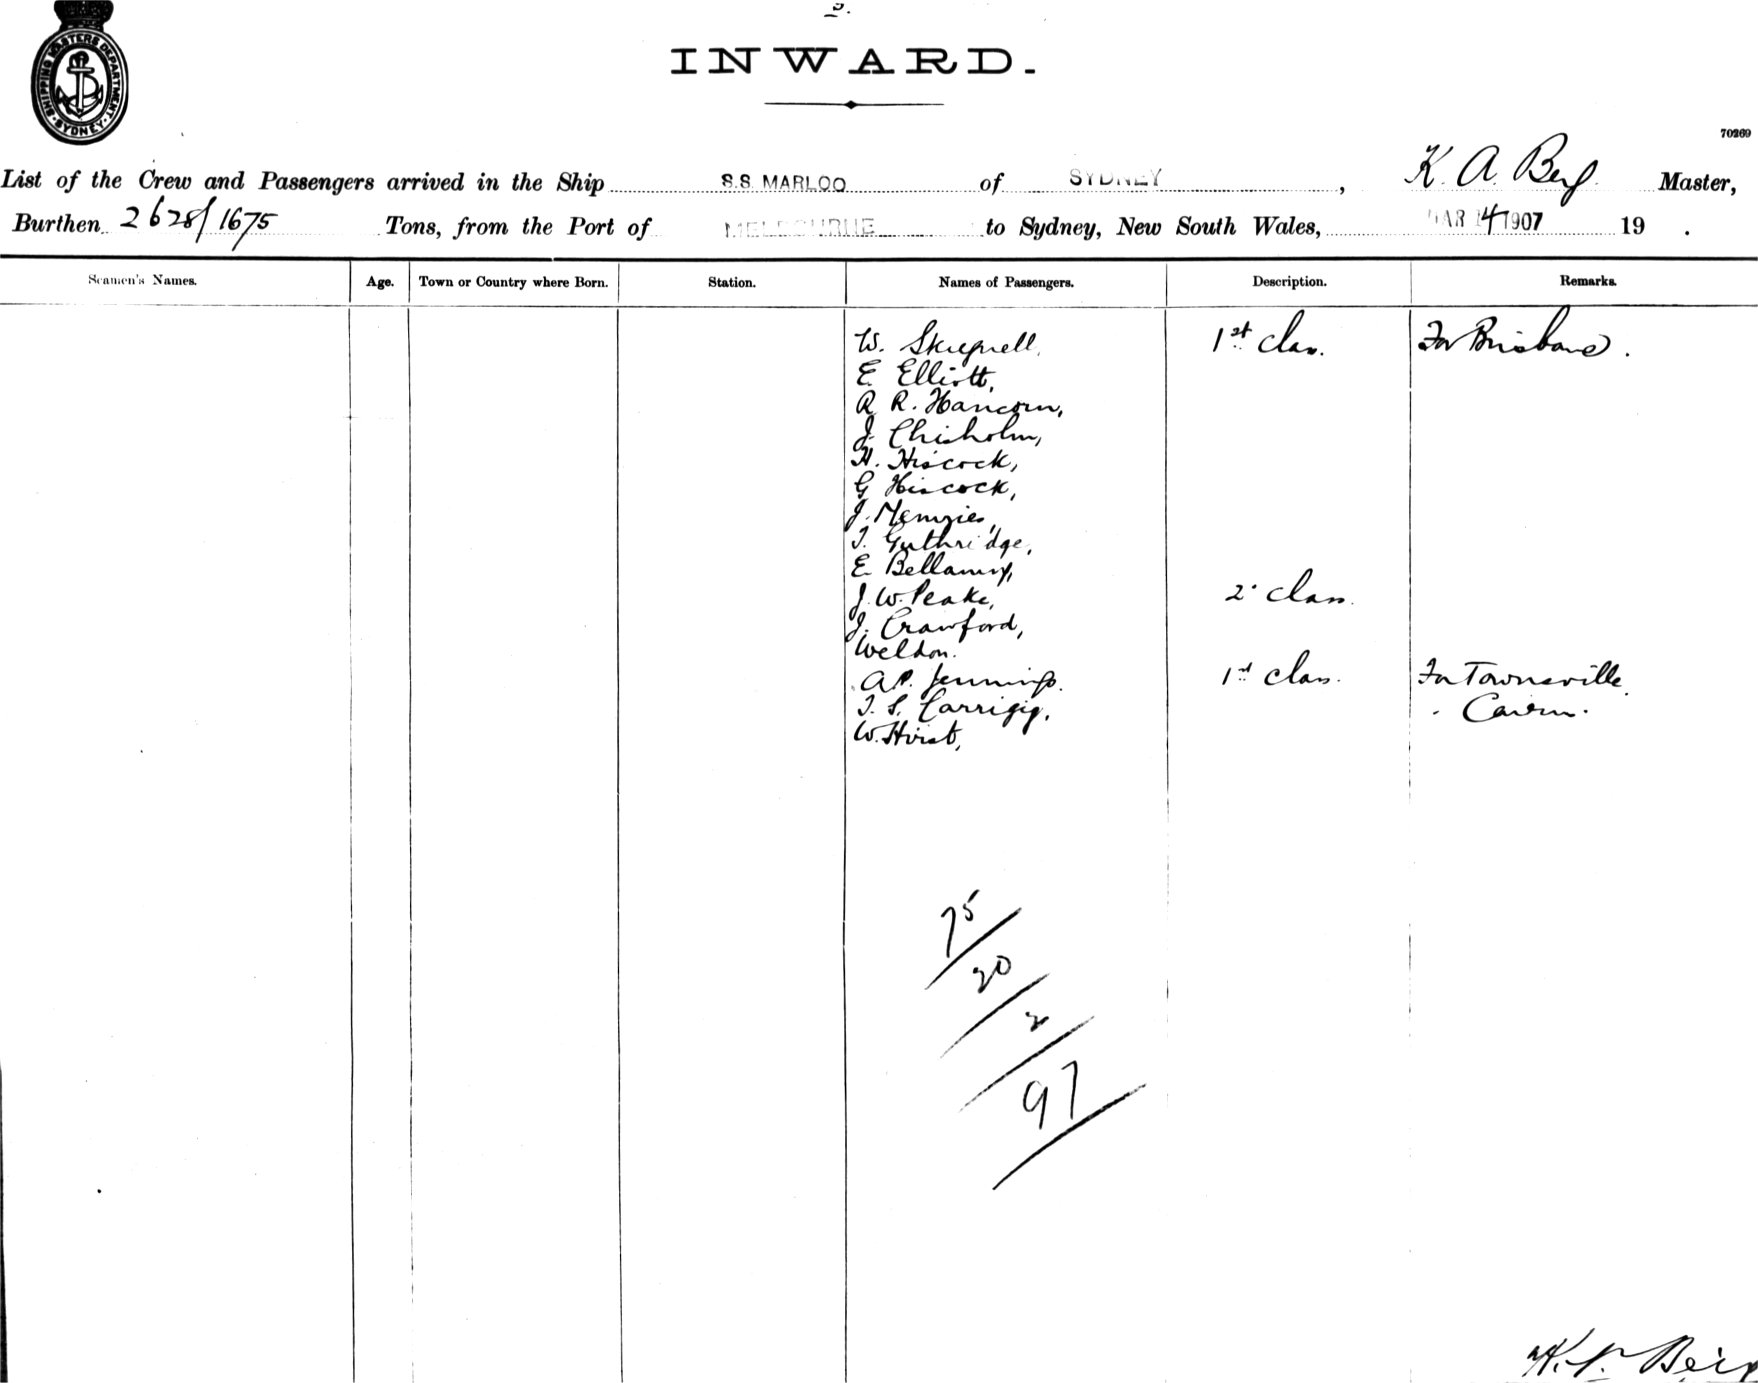 SHIPPING MASTERS DEPARTMENT. SYDNEY.
3.
INWARD.
70269
List of the Crew and Passengers arrived in the Ship S.S. MARLOO of SYDNEY, K. A. Berg Master,
Burthen 2628/1675 Tons, from the Port of MELBOURNE to Sydney, New South Wales, MAR 14 1907 19 .
Seamen's Names. Age. Town or Country where Born. Station. Names of Passengers. Description. Remarks.
W. 1st class. For Brisbane.
E Elliott,
A R. Hancorn,
J. Chisholm,
H. Hiscock,
G Hiscock,
J. Menzies,
T. Guthridge,
E Bellamy,
J. W. Peake, 2. class.
J. Crawford,
Weldon.
A.P. Jennings. 1st class. For Townsville.
T. S. " Cairns.
W. Hirst,
75
20
2
97
Berg